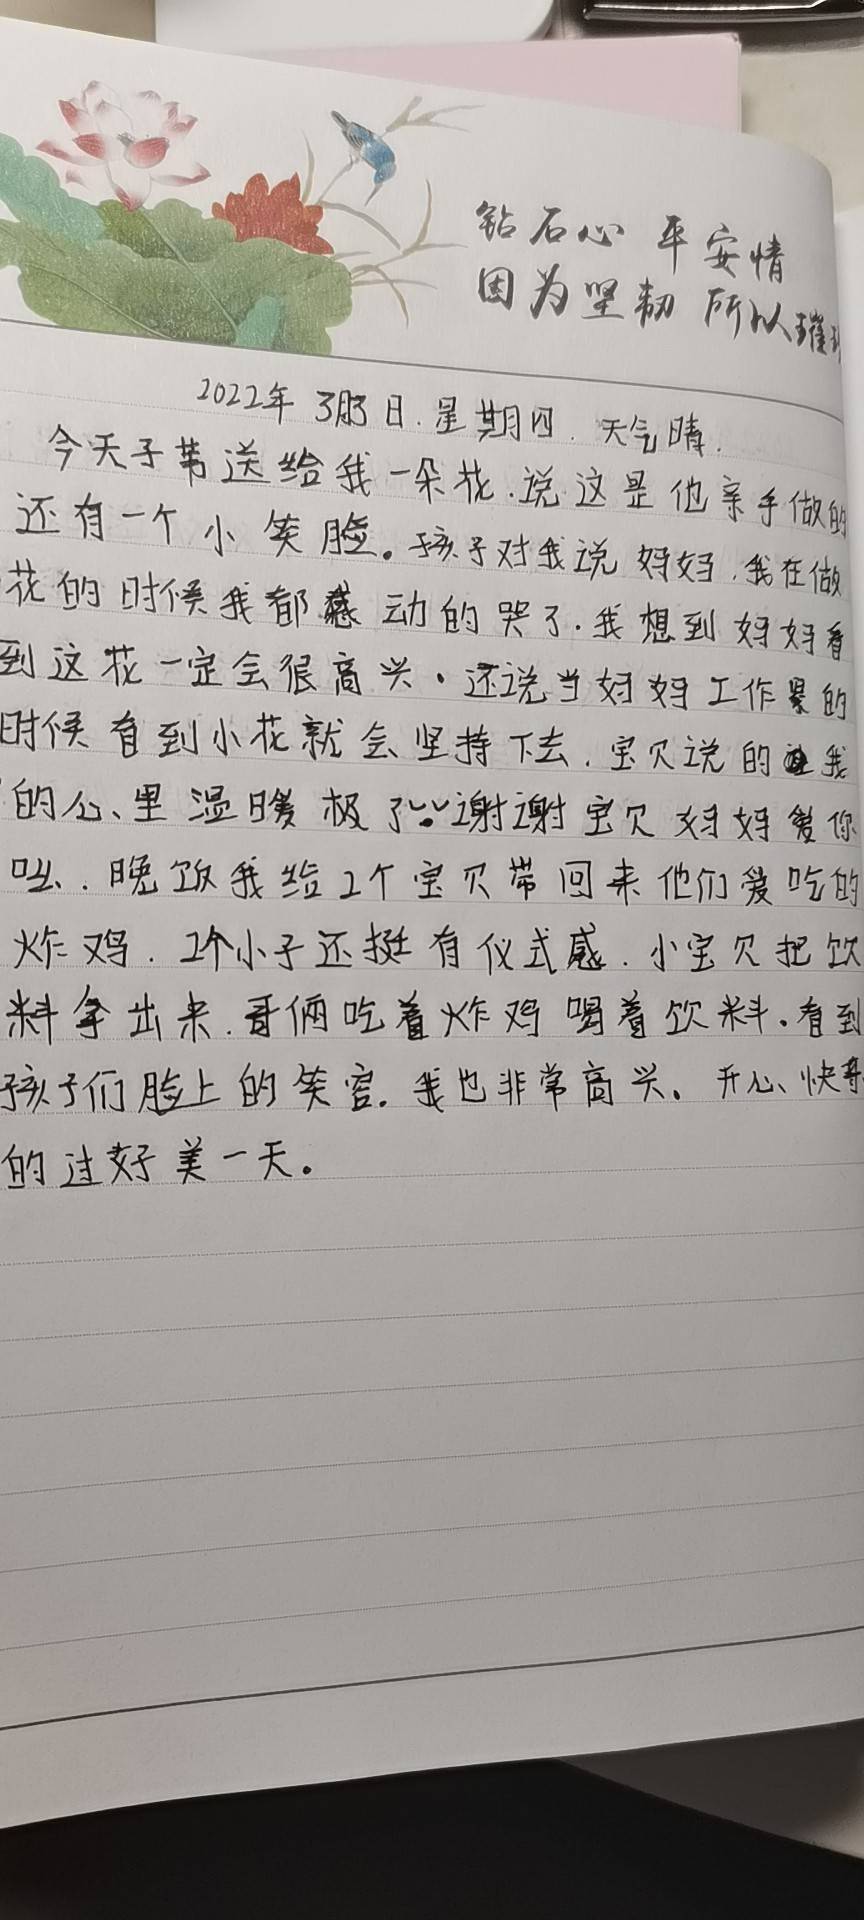 钻石心 平安情
因为坚韧 所以璀
2022年 3月3日.星期四. 天气晴.
今天子芾送给我一朵花.说这是他亲手做的
还有一个小笑脸。孩子对我说 妈妈.我在做
花的时候我都感动的哭了.我想到妈妈看
到这花一定会很高兴。还说当妈妈工作累的
时候看到小花就会坚持下去.宝贝说的让我
的心里温暖极了!谢谢宝贝 妈妈爱你
呦.晚饭我给2个宝贝带回来他们爱吃的
炸鸡.2个小子还挺有仪式感.小宝贝把饮
料拿出来.哥俩吃着炸鸡喝着饮料。看到
孩子们脸上的笑容.我也非常高兴。开心、快
的过好美一天。